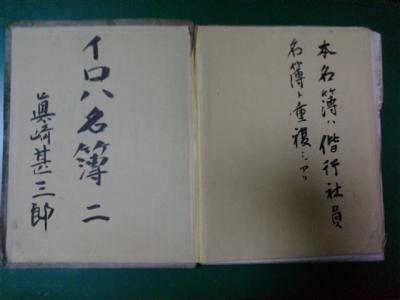 本名簿ハ偕行社員
名簿ト重複シアリ
イロハ名簿 二
眞崎甚三郎